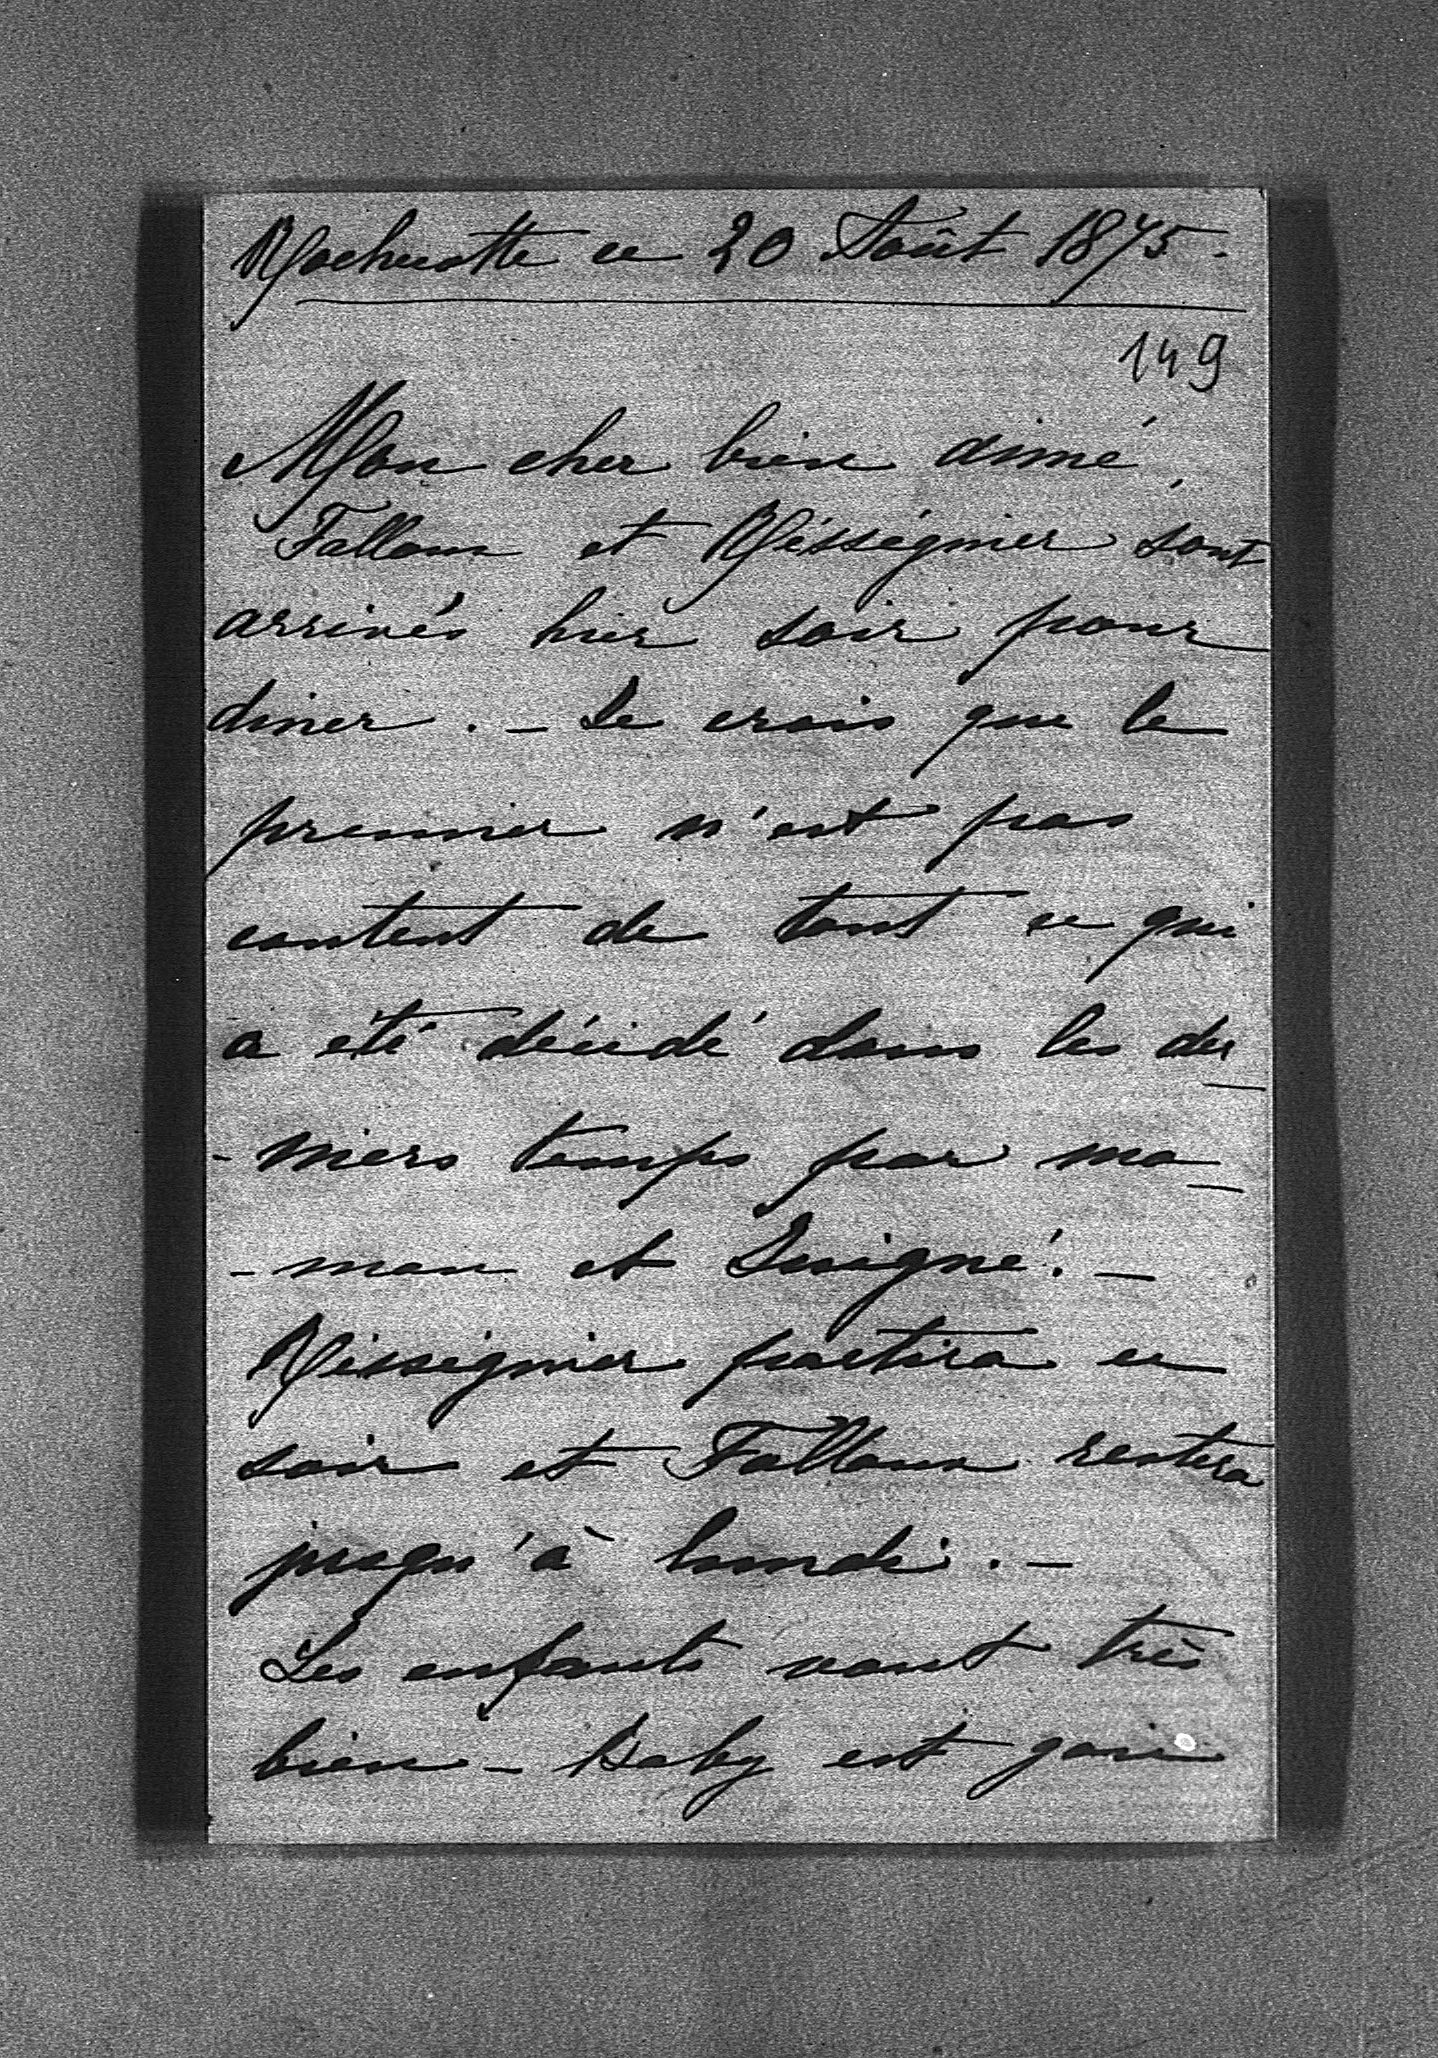 Rochecotte ce 20 Août 1875.
149
Mon cher bien aimé,
Falloux et Rességnier sont
arrivés hier soir pour
diner. – Je crois que le
premier n'est pas
content de tout ce qui
a été décidé dans les der
- niers temps par ma-
- man et Juigné. –
Rességnier partira ce
soir et Falloux restera
jusqu'à lundi. –
Les enfants vont très
bien – Baby est gaie